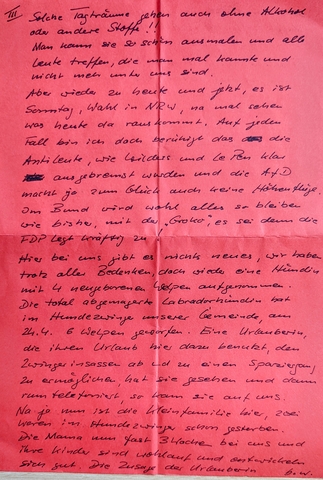 III Solche Tagträume gehen auch ohne Alkohol
oder andere Stoffe!!
Man kann sie so schön ausmalen und alle
Leute treffen, die man mal kannte und
nicht mehr unter uns sind.
Aber wieder zu heute und jetzt, es ist
Sonntag, Wahl in NRW, na mal sehen
was heute da rauskommt. Auf jeden
Fall bin ich doch beruhigt das die
Antileute, wie Wilders und Le Pen klar
ausgebremst wurden und die AfD
macht ja zum Glück auch keine Höhenflüge.
Im Bund wird wohl alles so bleiben
wie bisher, mit der „Groko“, es sei denn die
FDP legt kräftig zu.
Hier bei uns gibt es nichts neues, wir haben
trotz aller Bedenken, doch wieder eine Hündin
mit 4 neugeborenen Welpen aufgenommen.
Die total abgemagerte Labradorhündin hat
im Hundezwinger unserer Gemeinde, am
24.4. 6 Welpen geworfen. Eine Urlauberin,
die ihren Urlaub hier dazu benutzt, den
Zwingerinsassen ab und zu einen Spaziergang
zu ermöglichen, hat sie gesehen und dann
rumtelefoniert, so kam sie auf uns.
Na ja nun ist die Kleinfamilie hier, zwei
waren im Hundezwinger schon gestorben.
Die Mama nun fast 3 Wochen bei uns und
ihre Kinder sind wohlauf und entwickeln
sich gut. Die Zusage der Urlauberin b.w.